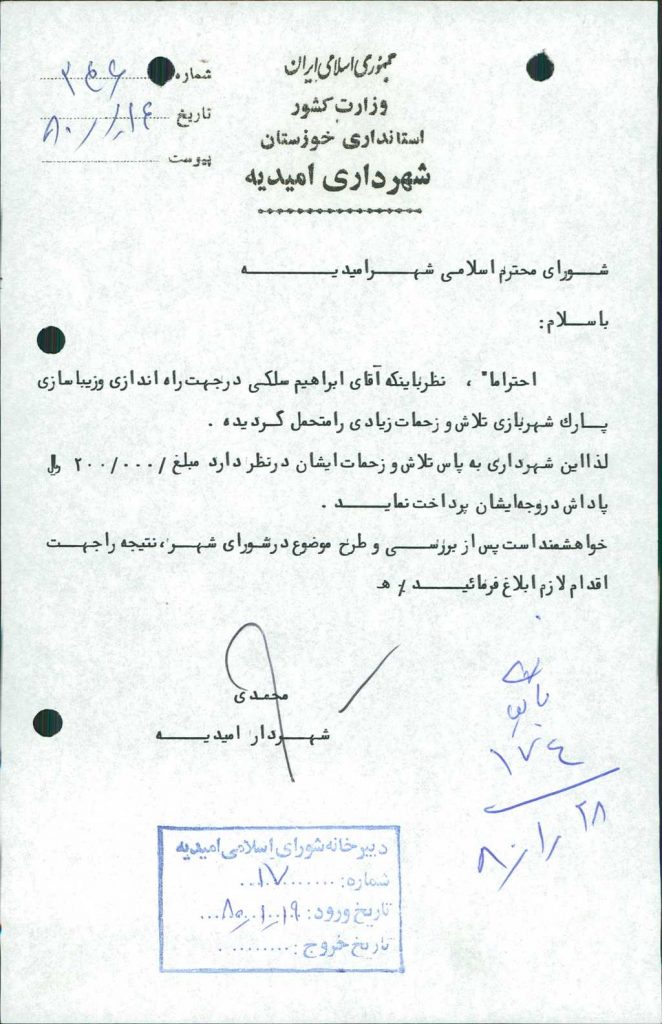 جمهوری اسلامی ایران
وزارت کشور
استانداری خوزستان
شهرداری امیدیه
شماره ۳۵۶
تاریخ ۸۰/۱/۱۴
پیوست
شورای محترم اسلامی شهر امیدیه
باسلام:
احتراما" ، نظر باینکه آقای ابراهیم سلکی در جهت راه اندازی و زیبا سازی
پارك شهربازی تلاش و زحمات زیادی را متحمل گردیده .
لذا این شهرداری به پاس تلاش و زحمات ایشان در نظر دارد مبلغ /۲۰۰/۰۰۰ ریال
پاداش در وجه ایشان پرداخت نماید .
خواهشمند است پس از بررسی و طرح موضوع در شورای شهر ، نتیجه را جهت
اقدام لازم ابلاغ فرمائید / ه
محمدی
شهردار امیدیه
۱۷۴
۸۰/۱/۲۸
دبیرخانه شورای اسلامی امیدیه
شماره: ۱۷
تاریخ ورود: ۸۰/۱/۱۹
تاریخ خروج: